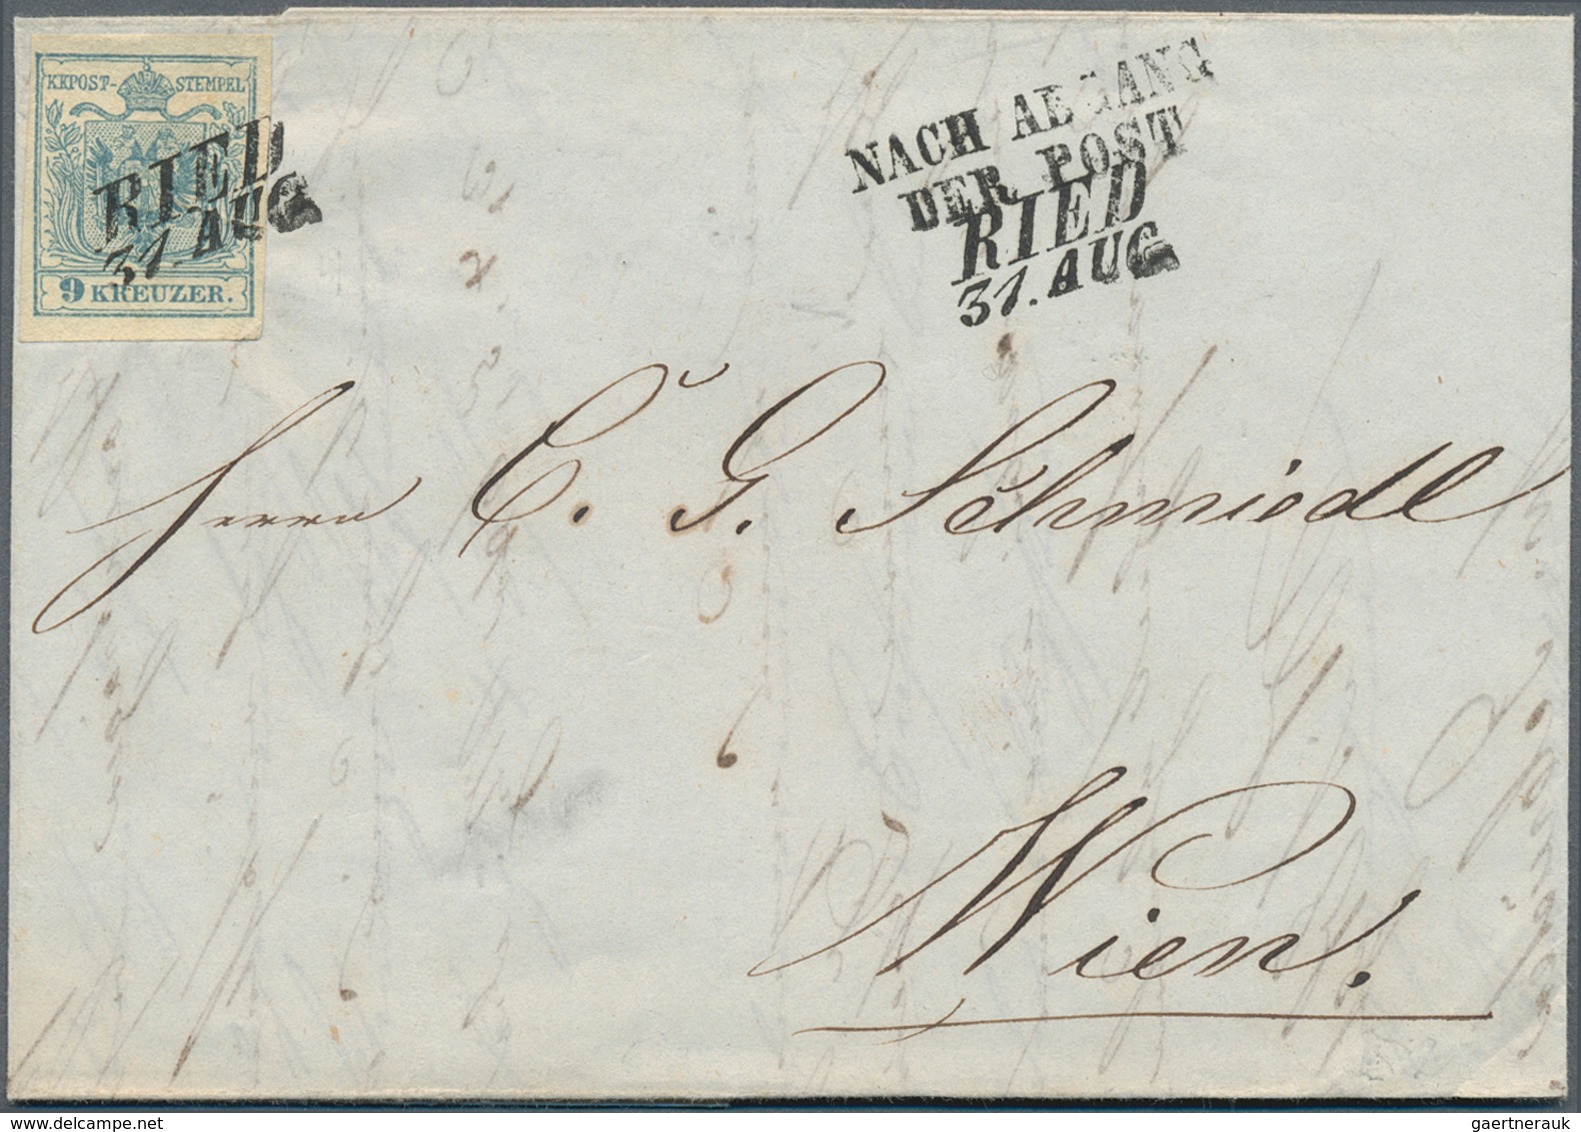 KKPOST-STEMPEL
RIED
31. AUG
9 KREUZER.
NACH ABGANG
DER POST
RIED
31. AUG
Herrn C. G. Schmiedl
Wien.
gaertnerauk@